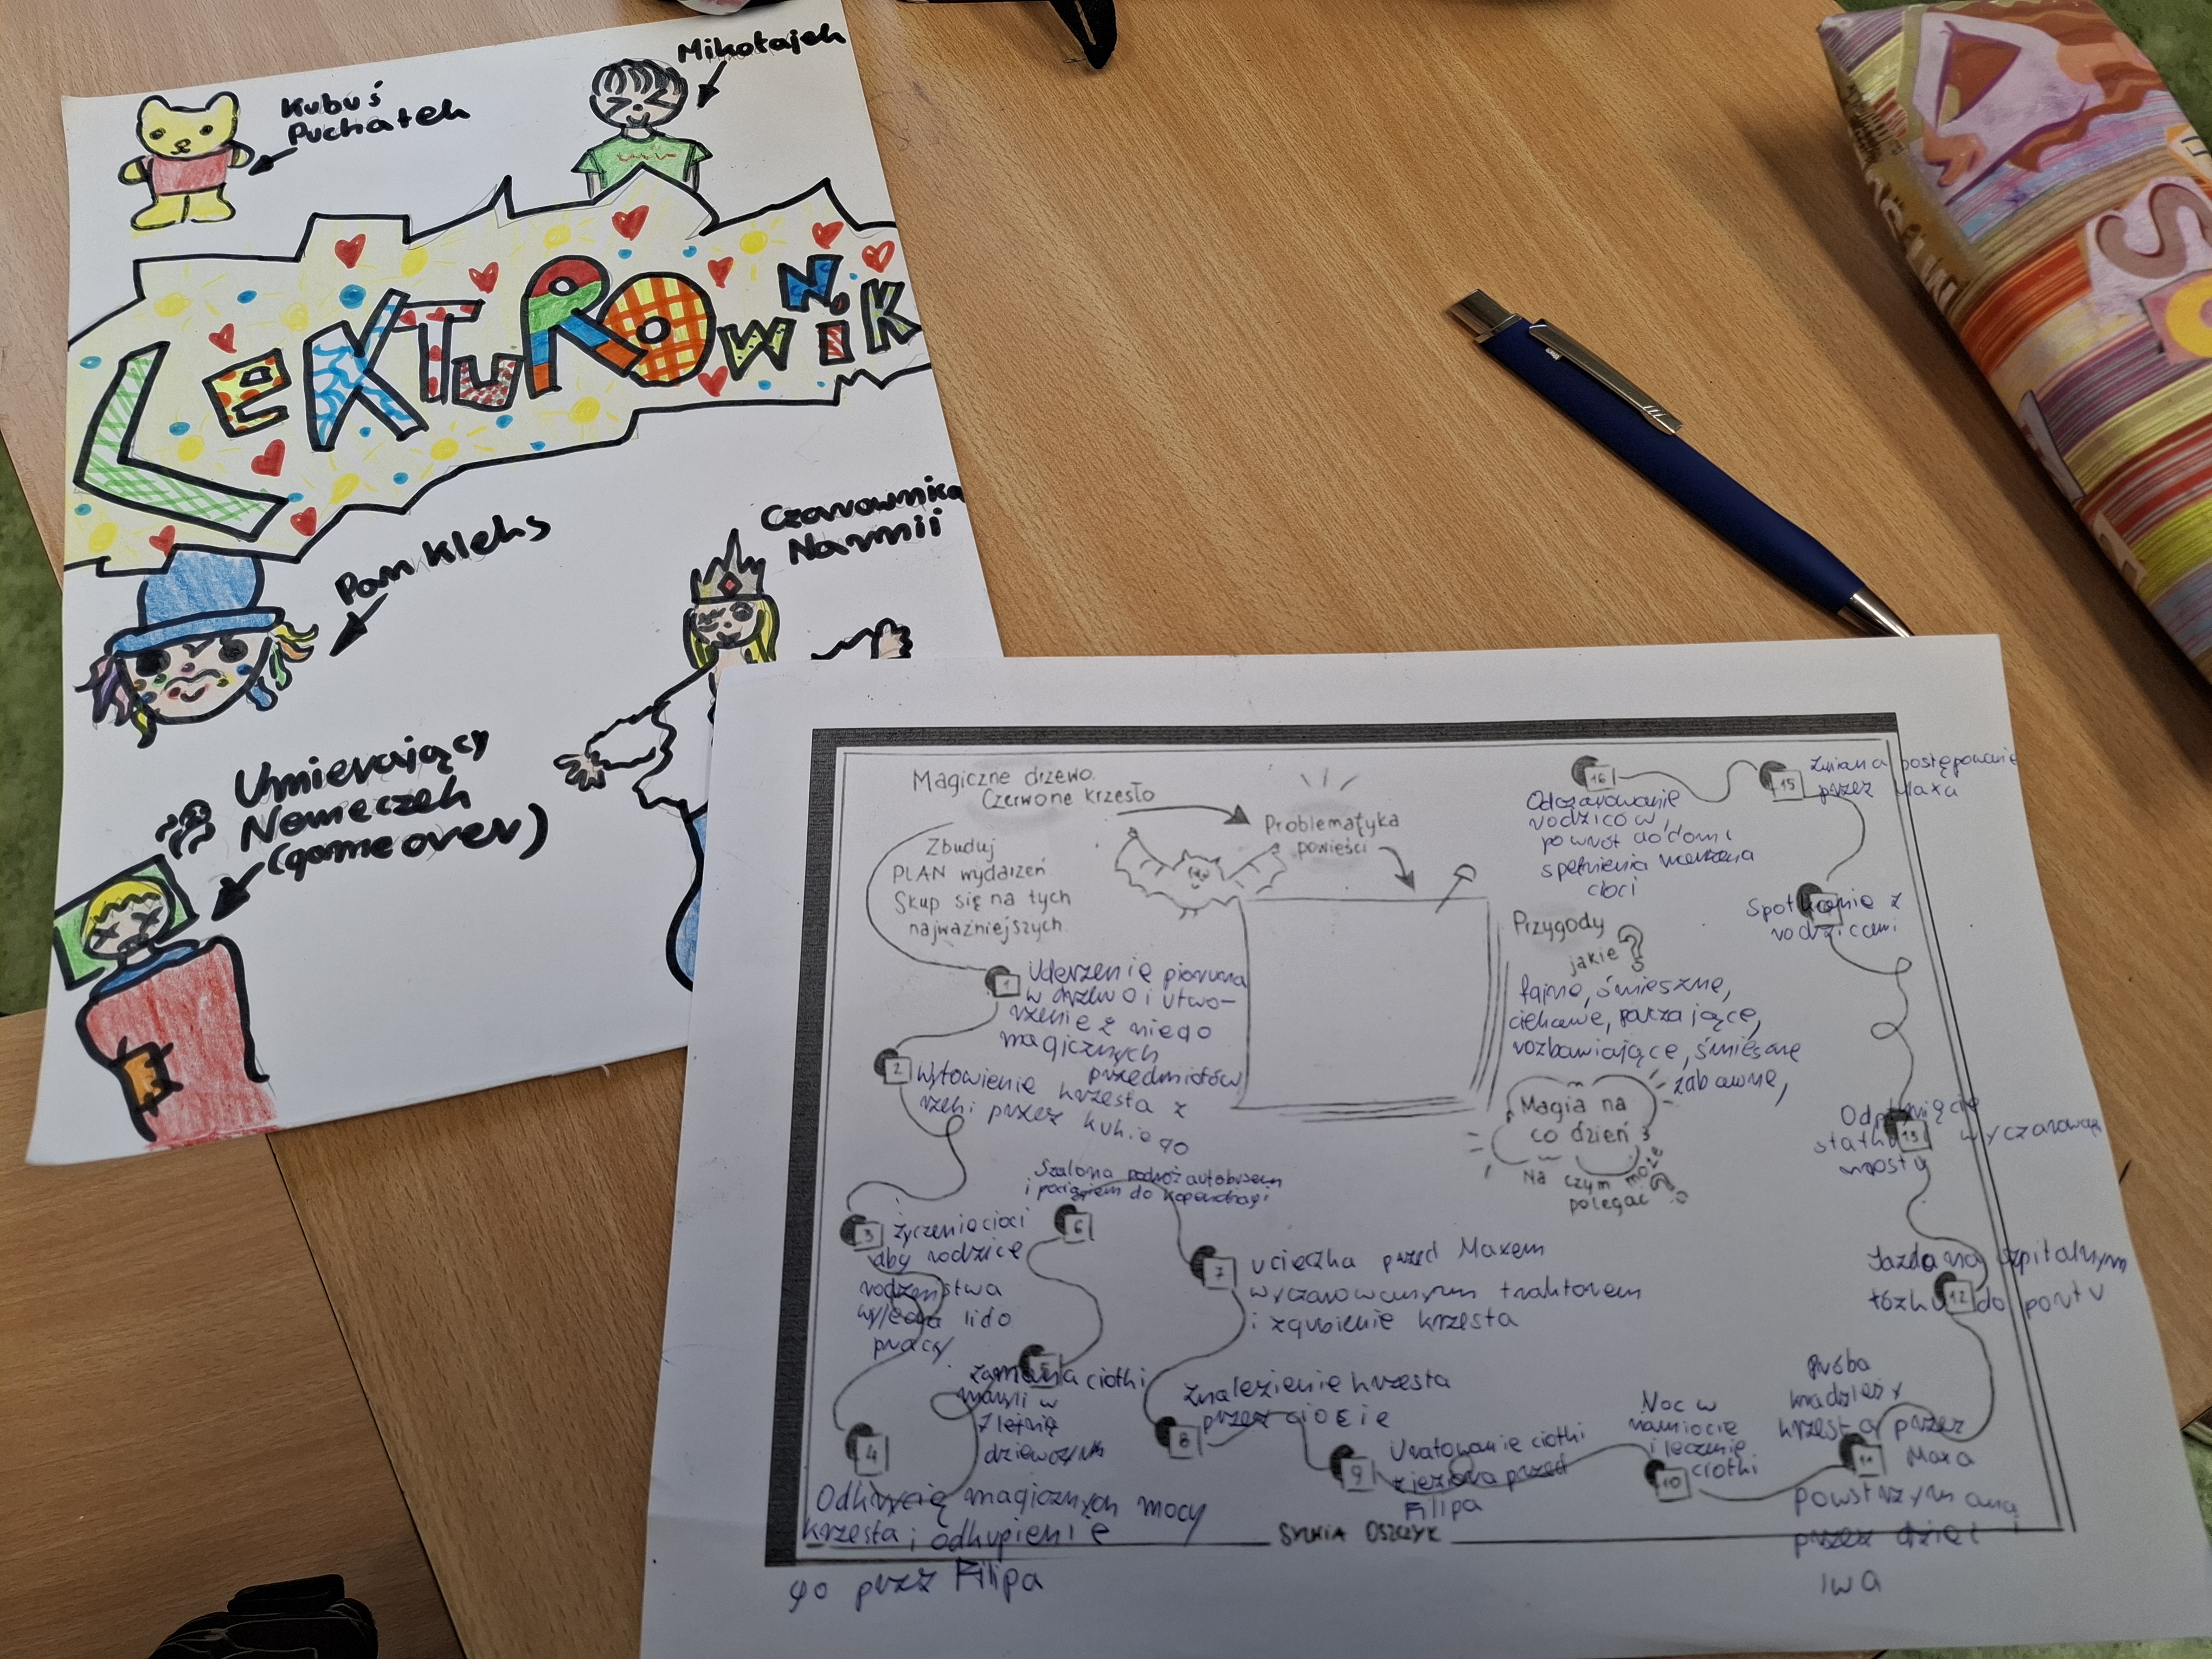 Kubuś
Puchatek
Mikołajek
LeKTuROwNiK
Pan Kleks
Czarownica
Narnii
Umierający
Nemeczek
(game over)
Magiczne drzewo.
Czerwone krzesło
Problematyka
powieści
Zbuduj
PLAN wydarzeń
Skup się na tych
najważniejszych.
1
Uderzenie pioruna
w drzewo i utwo-
rzenie z niego
magicznych
przedmiotów
2
Wyłowienie krzesła z
rzeki przez kukiego
3
życzenie cioci
aby rodzice
rodzeństwa
wyjechali do
pracy
4
Odkrycie magicznych mocy
krzesła i odkupienie
go przez Filipa
5
zamiana ciotki
maryli w
7 letnią
dziewczynk
6
Szalona podróż autobusem
i pociągiem do kopenhagi
7
ucieczka przed Maxem
wyczarowanym traktorem
i zgubienie krzesła
8
Znalezienie krzesła
przez ciocię
9
Uratowanie ciotki
przed
Filipa
10
Noc w
namiocie
i leczenie
ciotki
11
próba
kradzieży
krzesła przez
Maxa
powstrzymana
przez dzięc i
iwa
12
Jazda na szpitalnym
łóżku do portu
13
Odpłynięcie
statku wyczarowan
mosty
Spotkanie z
rodzicami
15
Zmiana postępowanie
przez Maxa
16
Odczarowanie
rodziców,
powrót do domu
spełnienia marzenia
cioci
Przygody
jakie?
fajne, śmieszne,
ciekawe,
rozbawiające, śmieszne
zabawne,
Magia na
co dzień
Na czym może
polegać?
SYLWIA OSZCZYK